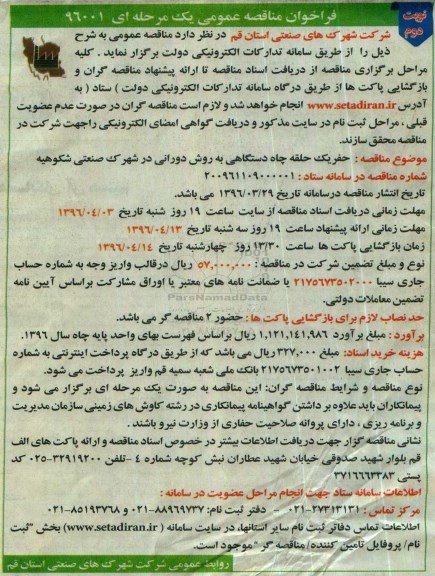 نوبت دوم
فراخوان مناقصه عمومی یک مرحله ای ۹۶۰۰۱
شرکت شهرک های صنعتی استان قم در نظر دارد مناقصه عمومی به شرح
ذیل را از طریق سامانه تدارکات الکترونیکی دولت برگزار نماید . کلیه
مراحل برگزاری مناقصه از دریافت اسناد مناقصه تا ارائه پیشنهاد مناقصه گران و
بازگشایی پاکت ها از طریق درگاه سامانه تدارکات الکترونیکی دولت ( ستاد ) به
آدرس www.setadiran.ir انجام خواهد شد و لازم است مناقصه گران در صورت عدم عضویت
قبلی ، مراحل ثبت نام در سایت مذکور و دریافت گواهی امضای الکترونیکی راجهت شرکت در
مناقصه محقق سازند.
موضوع مناقصه : حفریک حلقه چاه دستگاهی به روش دورانی در شهرک صنعتی شکوهیه
شماره مناقصه در سامانه ستاد : ۲۰۰۹۶۱۱۰۹۰۰۰۰۰۱
تاریخ انتشار مناقصه درسامانه تاریخ ۱۳۹۶/۰۳/۲۹ می باشد.
مهلت زمانی دریافت اسناد مناقصه از سایت ساعت ۱۹ روز شنبه تاریخ ۱۳۹۶/۰۴/۰۳
مهلت زمانی ارائه پیشنهاد ساعت ۱۹ روز سه شنبه تاریخ ۱۳۹۶/۰۴/۱۳
زمان بازگشایی پاکت ها ساعت ۱۳/۳۰ روز چهارشنبه تاریخ ۱۳۹۶/۰۴/۱۴
نوع و مبلغ تضمین شرکت در مناقصه : ۵۷,۰۰۰,۰۰۰ ریال درقالب واریز وجه به شماره حساب
جاری سیبا ۲۱۷۵۶۷۳۵۰۲۰۰۰ یا ضمانت نامه های معتبر یا اوراق مشارکت براساس آیین نامه
تضمین معاملات دولتی.
حد نصاب لازم برای بازگشایی پاکت ها : حضور ۲ مناقصه گر می باشد.
برآورد : مبلغ برآورد ۱,۱۲۱,۱۴۱,۹۸۶ ریال براساس فهرست بهای واحد پایه چاه سال ۱۳۹۶.
هزینه خرید اسناد: مبلغ ۳۲۷,۰۰۰ ریال می باشد که از طریق درگاه پرداخت اینترنتی به شماره
حساب جاری سیبا ۲۱۷۵۶۷۳۵۰۱۰۰۲ بانک ملی شعبه سمیه قم واریز پرداخت می شود.
نوع مناقصه و شرایط مناقصه گران: این مناقصه به صورت یک مرحله ای برگزار می شود و
پیمانکاران باید علاوه بر داشتن گواهینامه پیمانکاری در رشته کاوش های زمینی سازمان مدیریت
و برنامه ریزی ، دارای پروانه صلاحیت حفاری از وزارت نیرو باشند .
نشانی مناقصه گزار جهت دریافت اطلاعات بیشتر در خصوص اسناد مناقصه و ارائه پاکت های الف
قم بلوار شهید صدوقی خیابان شهید عطاران نبش کوچه شماره ۴ -تلفن ۳۲۹۱۹۲۰۰-۰۲۵ کد
پستی ۳۷۱۶۶۶۳۳۸۳
اطلاعات سامانه ستاد جهت انجام مراحل عضویت در سامانه :
مرکز تماس : ۲۷۳۱۳۱۳۱-۰۲۱ - دفتر ثبت نام: ۸۸۹۶۹۷۳۷-۰۲۱ و ۸۵۱۹۳۷۶۸-۰۲۱
اطلاعات تماس دفاتر ثبت نام سایر استانها، در سایت سامانه ( www.setadiran.ir) بخش "ثبت
نام/ پروفایل تامین کننده/ مناقصه گر "موجود است.
روابط عمومی شرکت شهرک های صنعتی استان قم
ParsNamadData